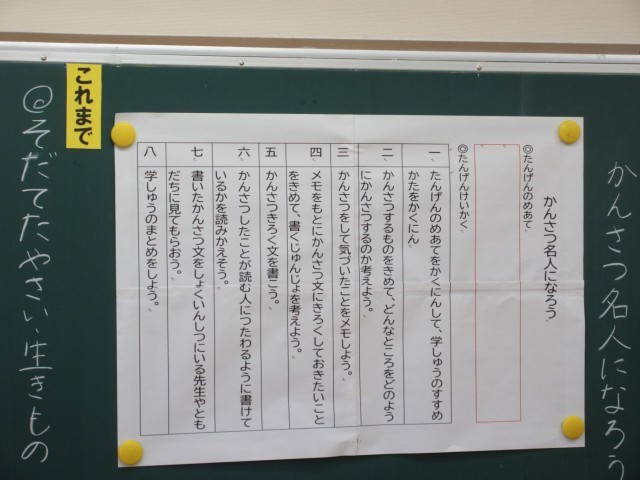 かんさつ名人になろう
かんさつ名人になろう
◎たんげんのめあて
◎たんげんけいかく
一 たんげんのめあてをかくにんして、学しゅうのすすめ
かたをかくにん
二 かんさつするものをきめて、どんなところをどのよう
にかんさつするのか考えよう。
三 かんさつをして気づいたことをメモしよう。
四 メモをもとにかんさつ文にきろくしておきたいこと
をきめて、書くじゅんじょを考えよう。
五 かんさつきろく文を書こう。
六 かんさつしたことが読む人につたわるように書けて
いるかを読みかえそう。
七 書いたかんさつ文をしょくいんしつにいる先生やとも
だちに見てもらおう。
八 学しゅうのまとめをしよう。
これまで
◎そだてたやさい、生きもの